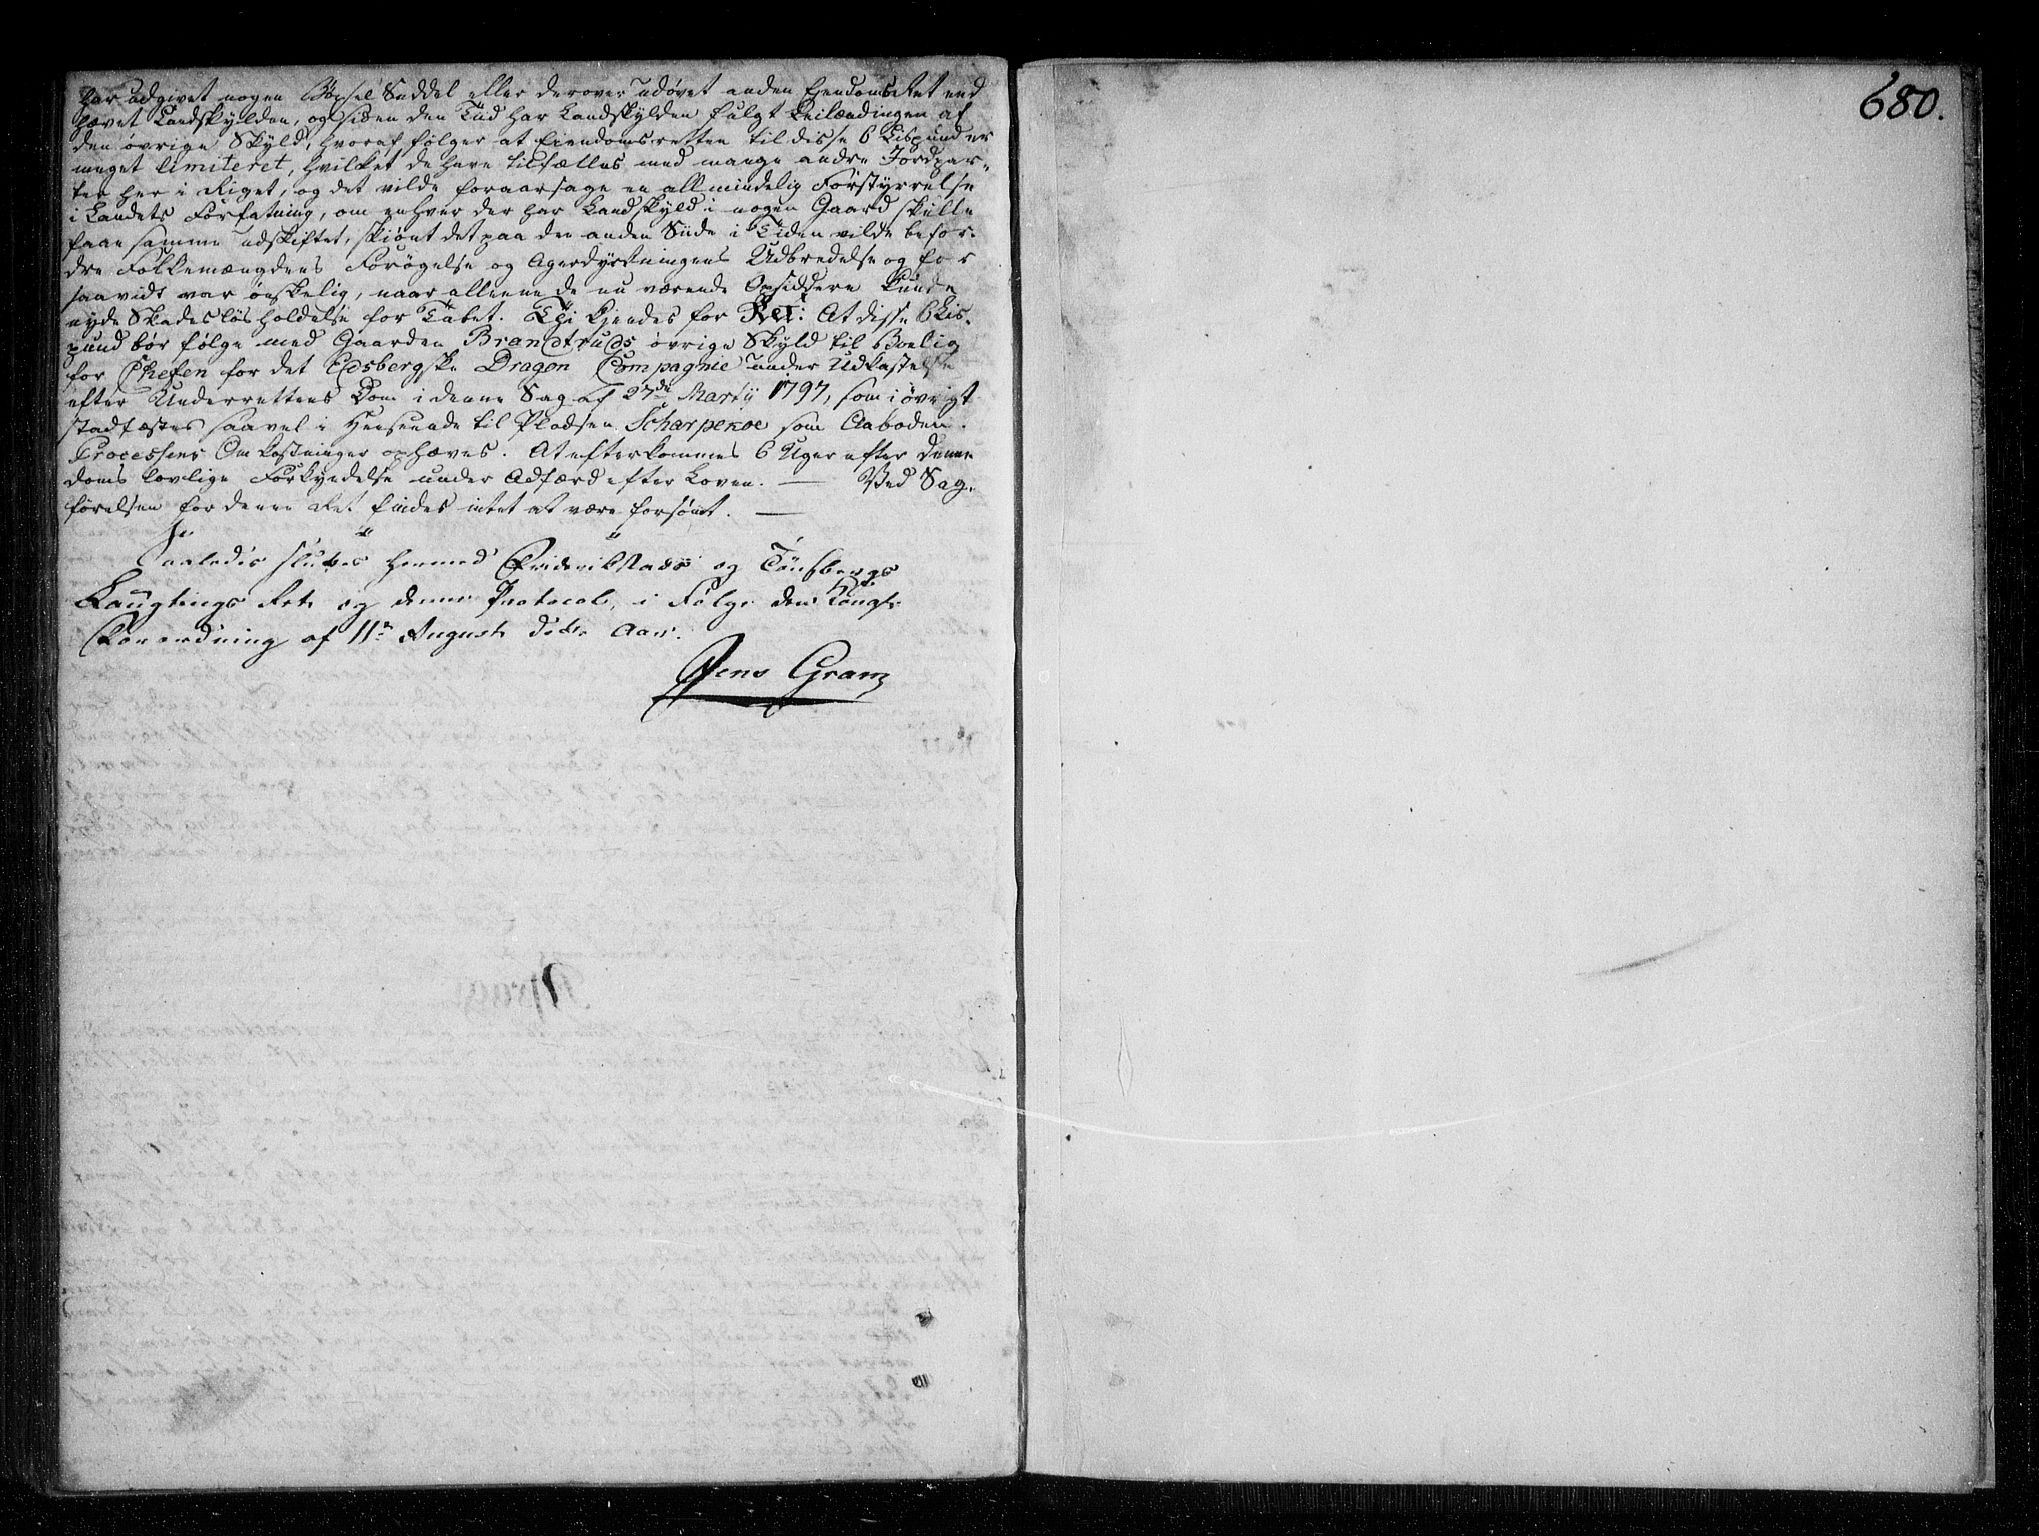 har udgivet nogen Bøxel Seddel eller derover udøvet anden EjendomsRet end
hævet Landskylden, og siden den Tiid har Landskylden fulgt Leilændingen af
den øvrige Skyld, hvoraf følger at Eiendomsretten til disse 6 Lispund er
meget limiteret, hvilket de have tilfælles med mange andre Jordpar-
ter her i Riget, og det vilde foraarsage en allmindelig Forstyrrelse
i Landets Forfatning, om enhver der har Landskyld i nogen Gaard skulle
faae samme udskiftet, skiønt det paa den anden Siide i Tiden vilde befor-
dre Folkemængdens Forøgelse og Agerdyrkningens Udbredelse og for
saavidt var ønskelig, naar alleene de nu værende Opsiddere kunde
nyde Skadesløsholdelse for Tabet. Thi kiendes for Ret: At disse 6 Lis-
pund bør følge med Gaarden Brandtruds øvrige Skyld til Boelig
for Chefen for det Eidsbergske Dragon Compagnie under Udkastelse
efter Underrettens Dom i denne Sag af 27de Martii 1797, som i øvrigt
stadfæstes saavel i Henseende til Pladsen Scharpenoe som Aaboden.
Processens Omkostninger ophæves. At efterkommes 6 Uger efter denne
Doms lovlige Forkyndelse under Adfærd efter Loven. — Ved Sag-
førelsen for denne Ret findes intet at være forsømt. —
Saaledes sluttes hermed Friderikstads og Tønsbergs
Laugtings Ret og denne Protocol, i Følge den Kongl:
Forordning af 11te August dette Aar.
Jens Gram
680.